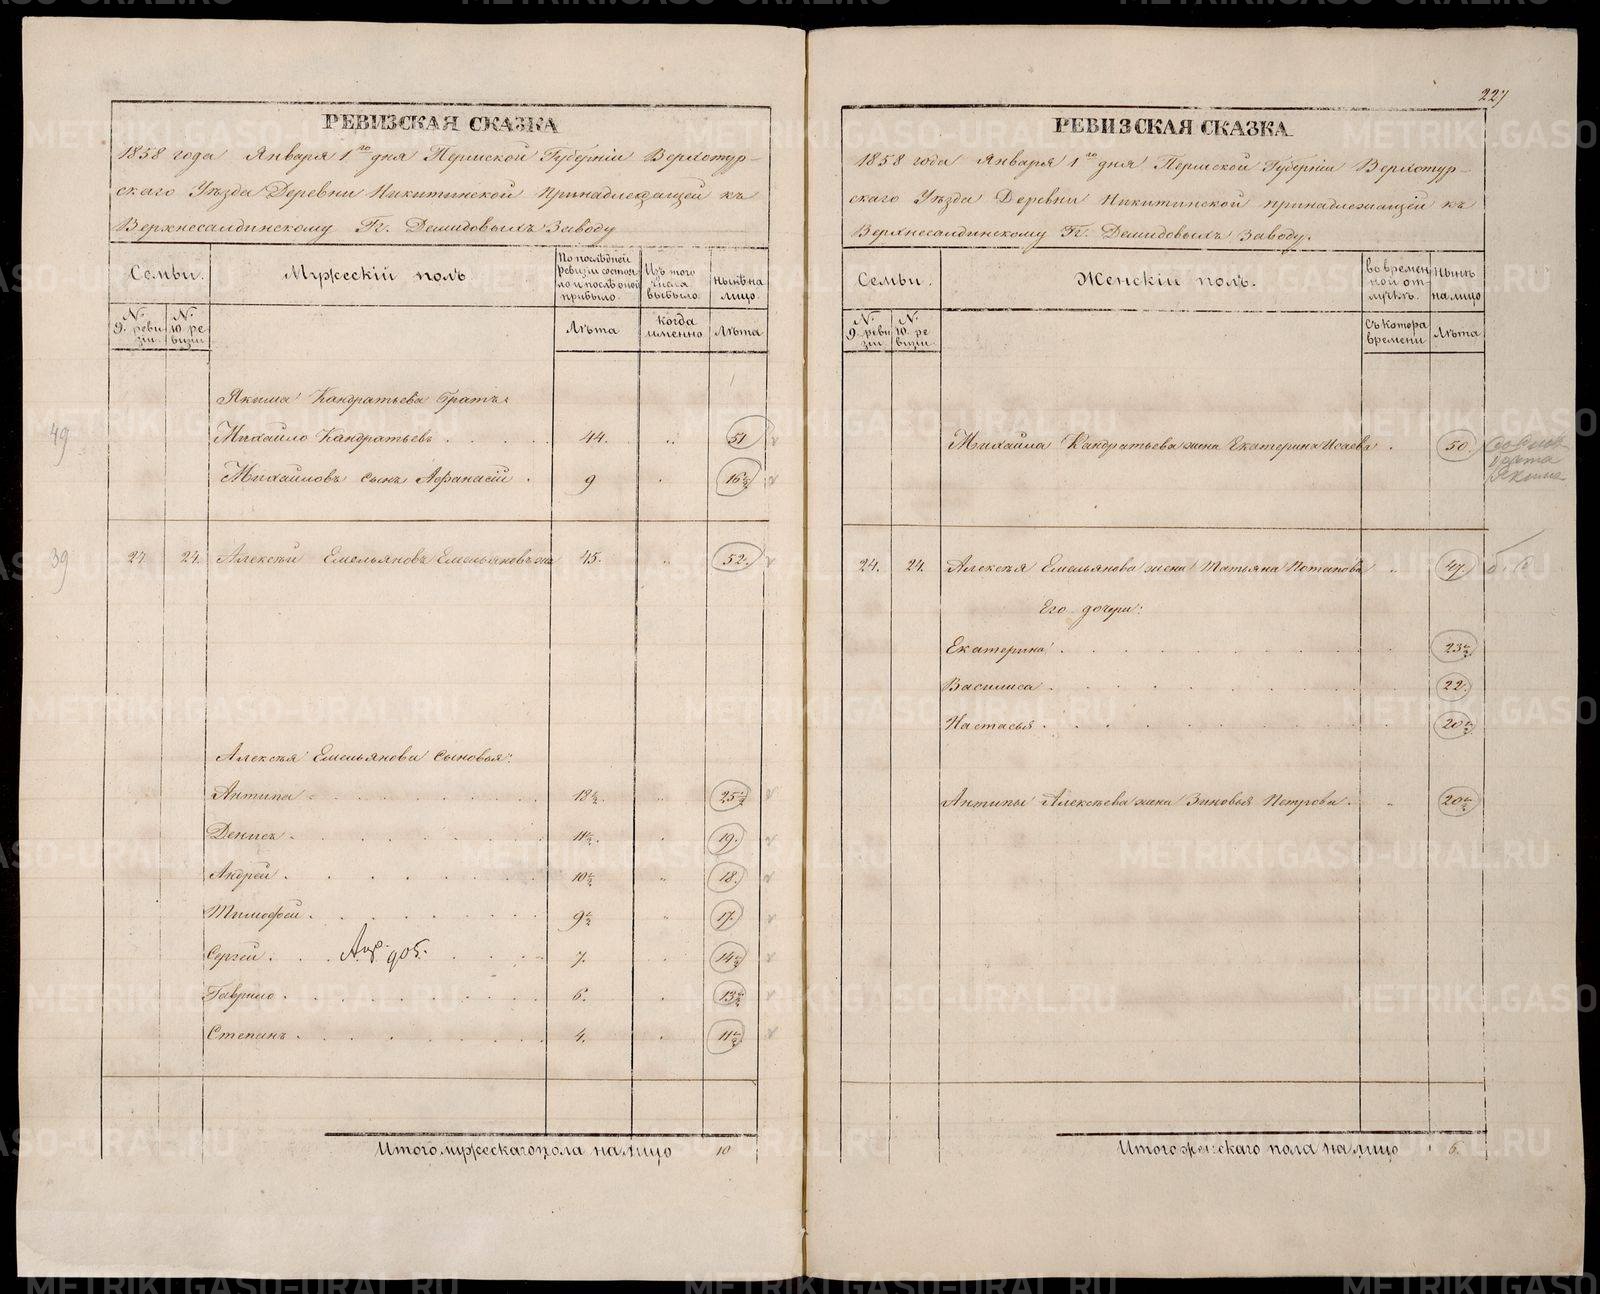 РЕВИЗСКАЯ СКАЗКА
1858 года Января 1го дня Пермской Губерніи Верхотур-
скаго Уѣзда Деревни Никитинской принадлежащей къ
Верхнесалдинскому Гг. Демидовыхъ Заводу
Семьи.
Мужескій полъ.
По послѣдней ревизіи состояло и послѣ оной прибыло.
Изъ того числа выбыло.
Нынѣ на лицо.
№ 9. ревизіи
№ 10. ревизіи
Лѣта
Когда именно
Лѣта
Якима Кандратьева братъ:
49 Михайло Кандратьевъ 44. 51
Михайловъ сынъ Афанасій 9 16½
39 24 24. Алексѣй Емельяновъ 45. 52.
Алексѣя Емельянова сыновья:
Антипа 18½. 25½
Денисъ 11½. 19.
Андрей 10½ 18.
Тимофей 9½ 17.
Сергей 7. 14½
Гаврило 6. 13½
Степанъ 4. 11½
Итого мужескаго пола на лицо 10
227
РЕВИЗСКАЯ СКАЗКА
1858 года Января 1го дня Пермской Губерніи Верхотур-
скаго Уѣзда Деревни Никитинской принадлежащей къ
Верхнесалдинскому Гг. Демидовыхъ Заводу.
Семьи.
Женскій полъ.
Во временной отлучкѣ.
Нынѣ на лицо
№ 9. ревизіи
№ 10. ревизіи
Съ котора времени
Лѣта
Михайла Кандратьева жена Екатерина Исаева 50.
брата
Якима
24. 24. Алексѣя Емельянова жена Татьяна Потапова 47.
Его дочери:
Екатерина 23½
Василиса 22.
Настасья 20½
Антипы Алексѣева жена Зиновья Петрова 20½
Итого женскаго пола на лицо 6.
METRIKI.GASO-URAL.RU